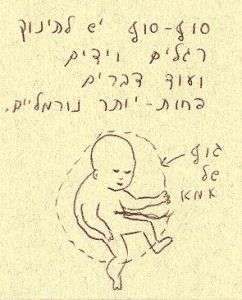 סוף-סוף יש לתינוק
רגלים וידים
ועוד דברים
פחות-יותר נורמליים.
גוף
של
אמא